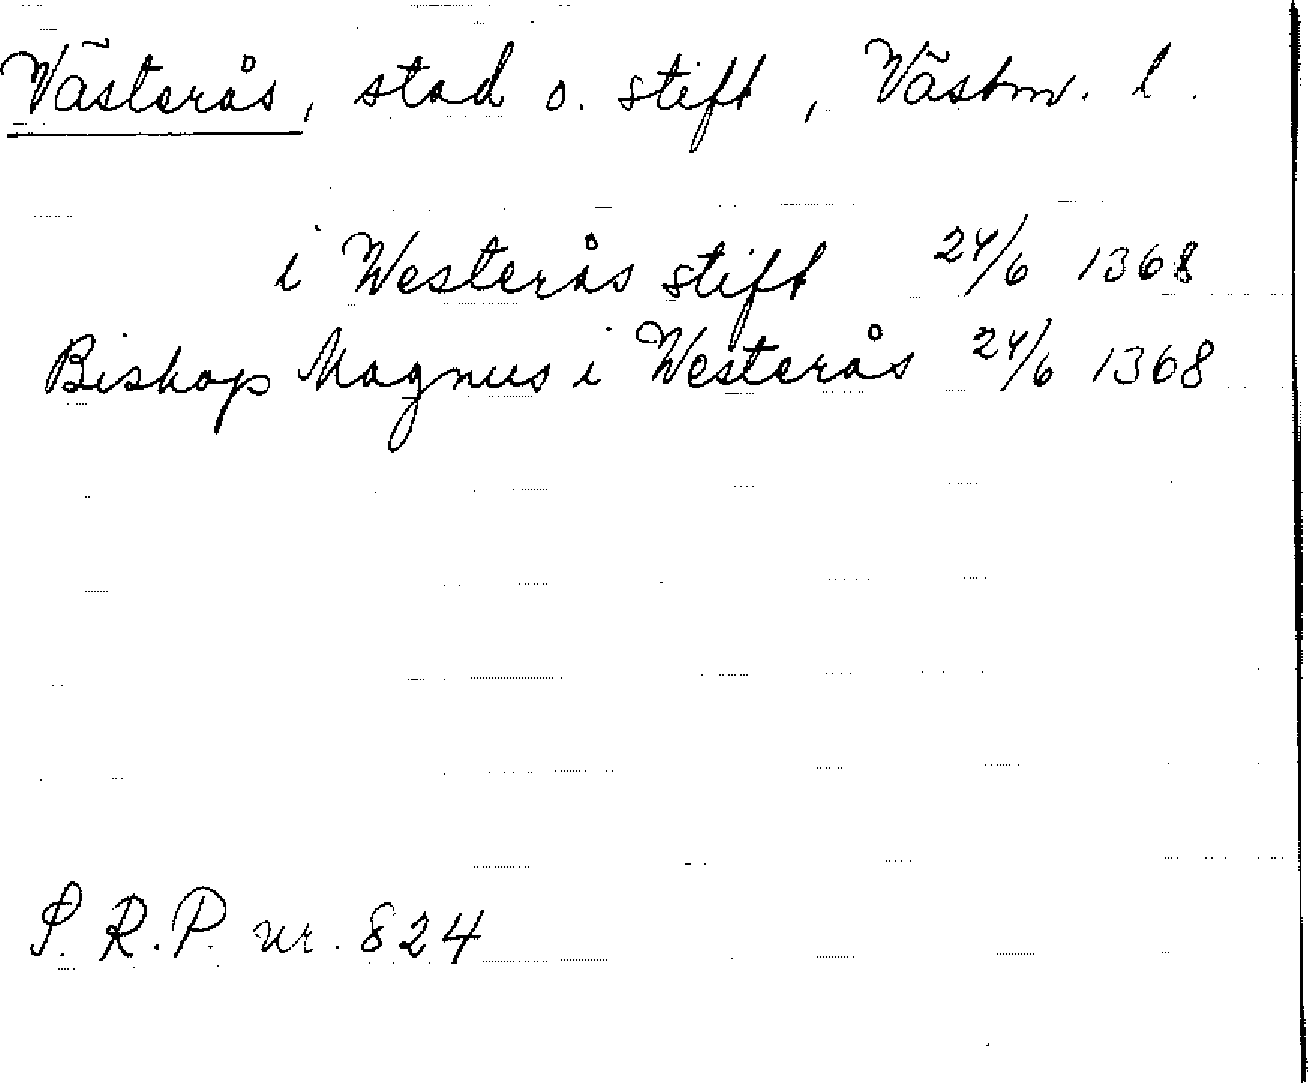 Västerås, stad o. stift, Västm. l.
i Westerås stift 24/6 1368
Biskop Magnus i Westerås 24/6 1368
S.R.P. nr. 824